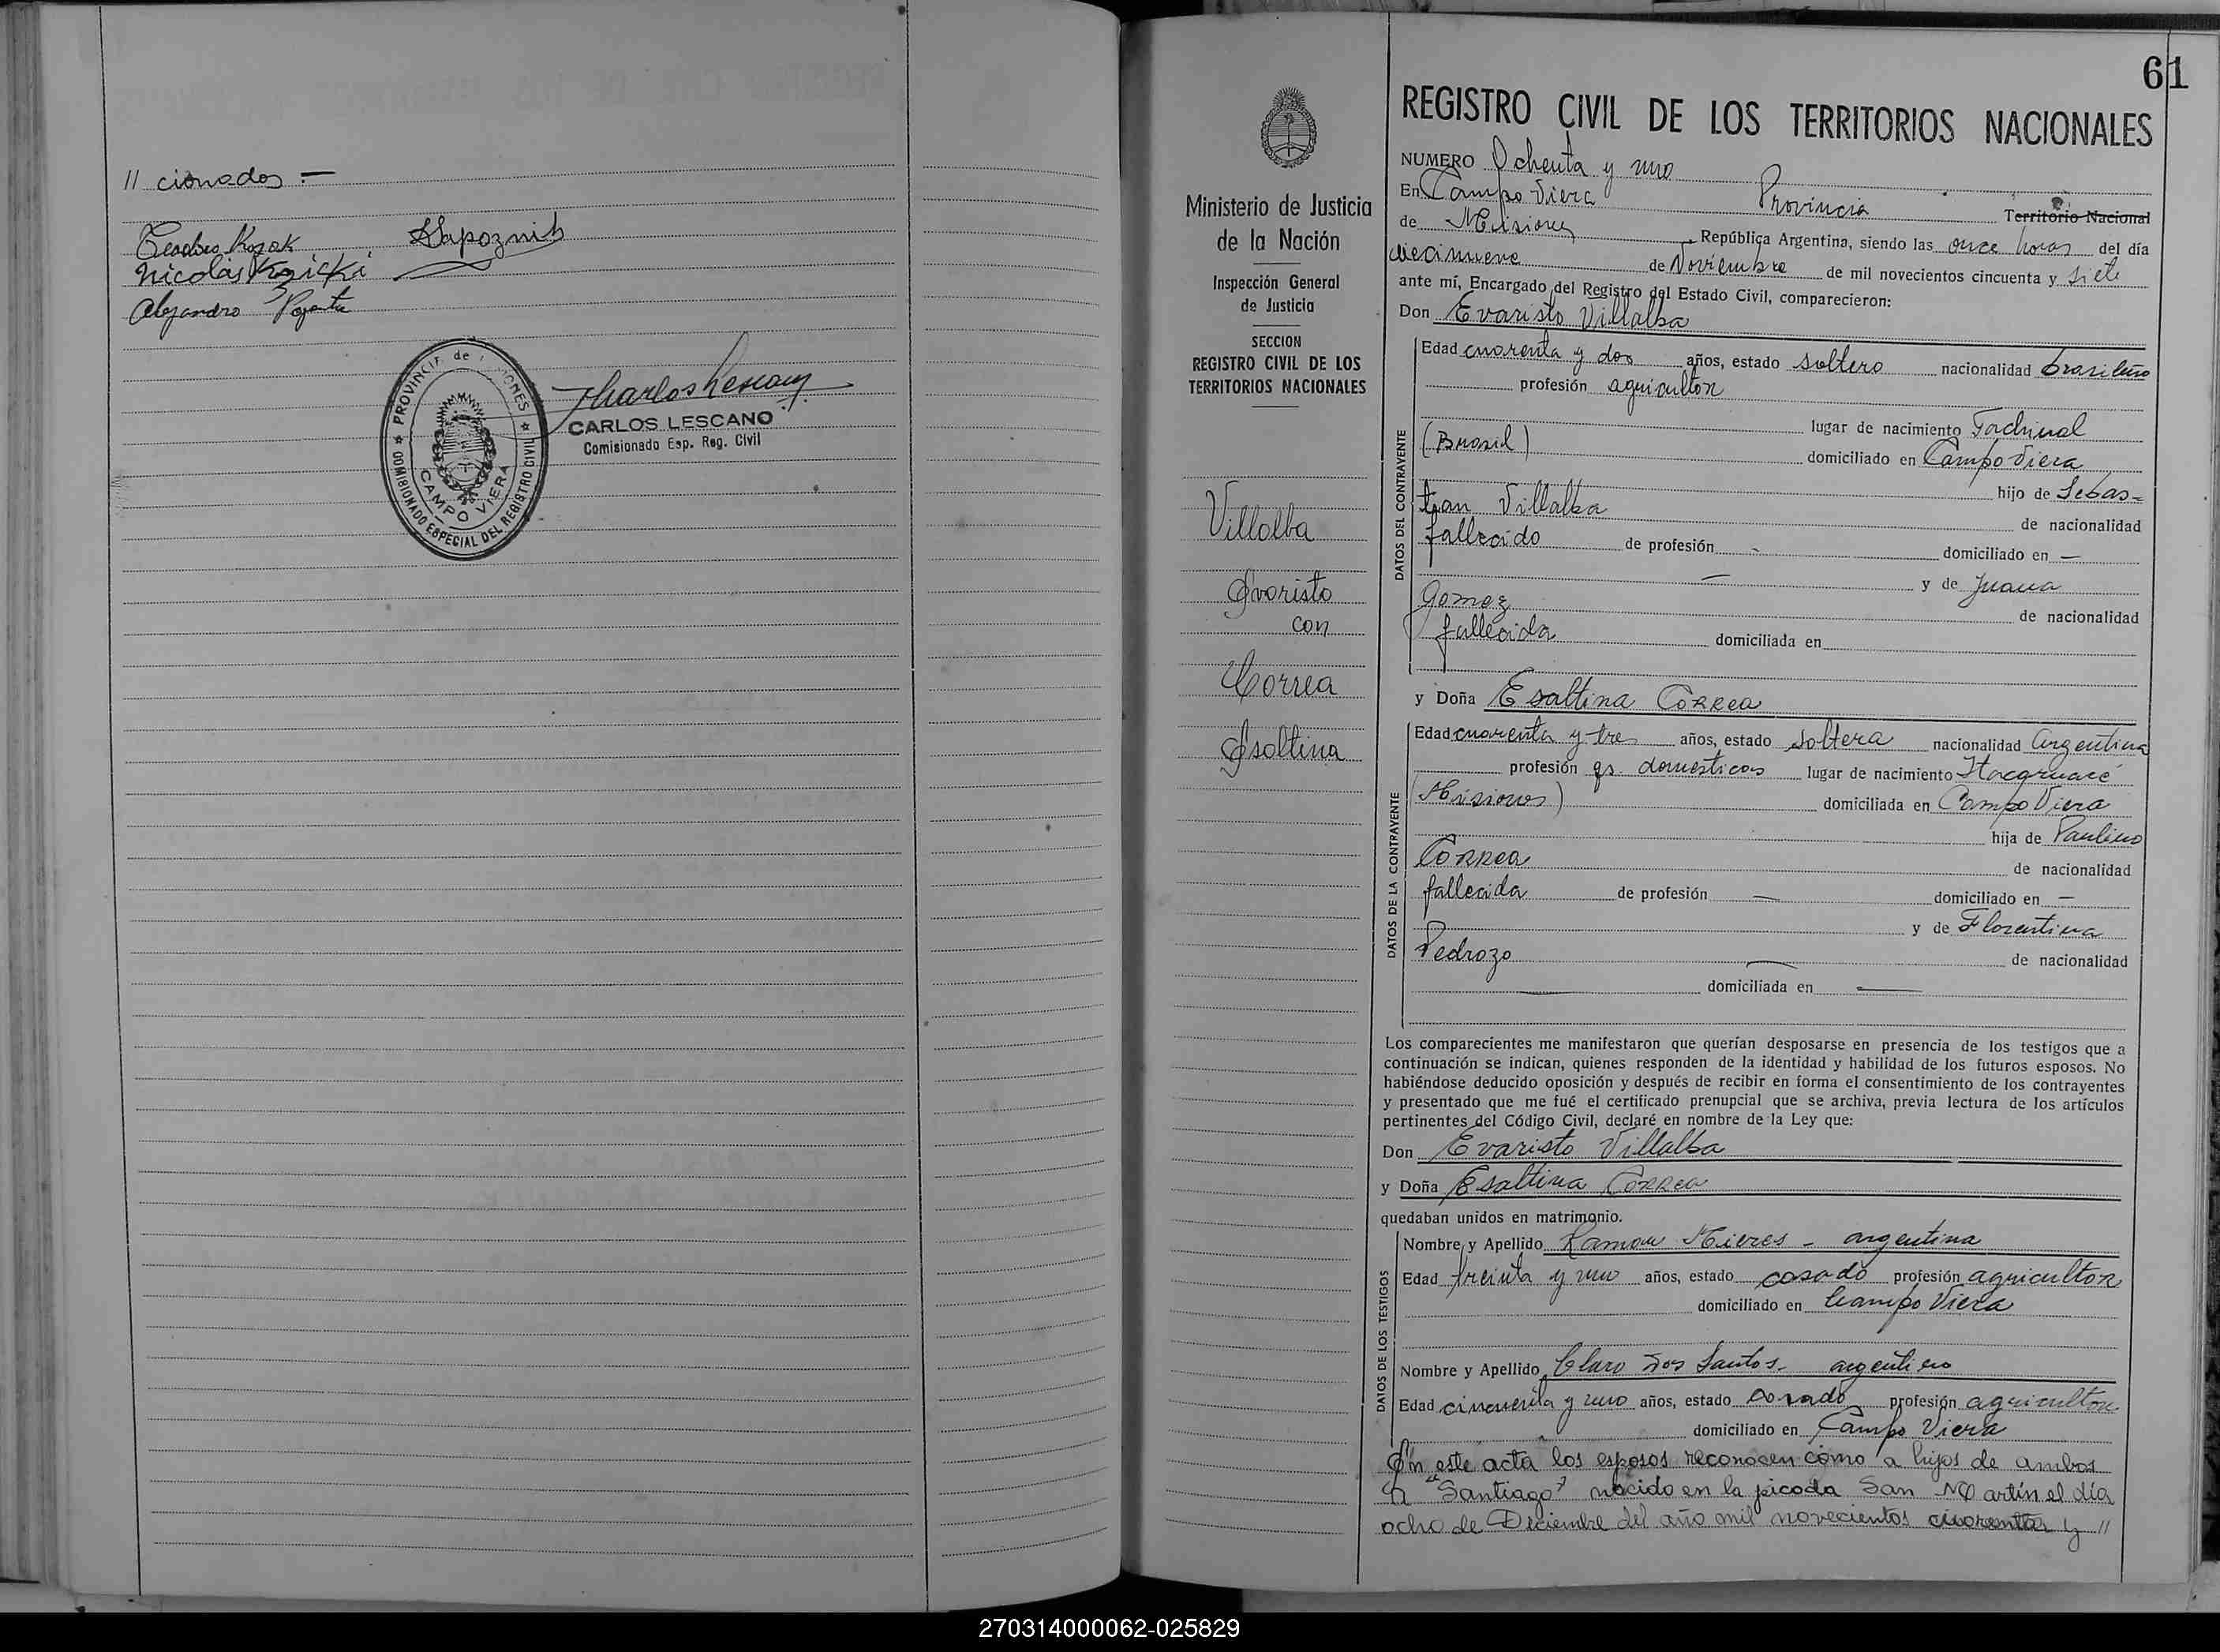 // cionados.—
Nicolás
Alejandro
PROVINCIA de MISIONES
COMISIONADO ESPECIAL DEL REGISTRO CIVIL
CAMPO VIERA
CARLOS LESCANO
Comisionado Esp. Reg. Civil
61
Ministerio de Justicia
de la Nación
Inspección General
de Justicia
SECCION
REGISTRO CIVIL DE LOS
TERRITORIOS NACIONALES
Villalba
Evaristo
con
Correa
Esaltina
REGISTRO CIVIL DE LOS TERRITORIOS NACIONALES
NUMERO Ochenta y uno
En Campo Viera Provincia Territorio Nacional
de Misiones, República Argentina, siendo las once horas del día
diecinueve de Noviembre de mil novecientos cincuenta y siete
ante mí, Encargado del Registro del Estado Civil, comparecieron:
Don Evaristo Villalba
DATOS DEL CONTRAYENTE
Edad cuarenta y dos años, estado soltero nacionalidad brasileño
profesión agricultor
lugar de nacimiento
(Brasil) domiciliado en Campo Viera
hijo de Sebas=
tian Villalba de nacionalidad
fallecido de profesión - domiciliado en —
— y de Juana
Gomez de nacionalidad
fallecida domiciliada en
y Doña Esaltina Correa
DATOS DE LA CONTRAYENTE
Edad cuarenta y tres años, estado soltera nacionalidad argentina
profesión qs. domesticos lugar de nacimiento Itacaruaré
(Misiones) domiciliada en Campo Viera
hija de Paulino
Correa de nacionalidad
fallecida de profesión — domiciliado en —
y de Florentina
Pedrozo — de nacionalidad
— domiciliada en —
Los comparecientes me manifestaron que querían desposarse en presencia de los testigos que a
continuación se indican, quienes responden de la identidad y habilidad de los futuros esposos. No
habiéndose deducido oposición y después de recibir en forma el consentimiento de los contrayentes
y presentado que me fué el certificado prenupcial que se archiva, previa lectura de los artículos
pertinentes del Código Civil, declaré en nombre de la Ley que:
Don Evaristo Villalba
y Doña Esaltina Correa
quedaban unidos en matrimonio.
DATOS DE LOS TESTIGOS
Nombre y Apellido Ramon Mieres - argentina
Edad treinta y uno años, estado casado profesión agricultor
domiciliado en Campo Viera
Nombre y Apellido Claro Dos Santos- argentino
Edad cincuenta y uno años, estado casado profesión agricultor
domiciliado en Campo Viera
En este acta los esposos reconocen como a hijos de ambos
a "Santiago" nacido en la picada San Martín el día
ocho de Diciembre del año mil novecientos cuarenta y //
270314000062-025829